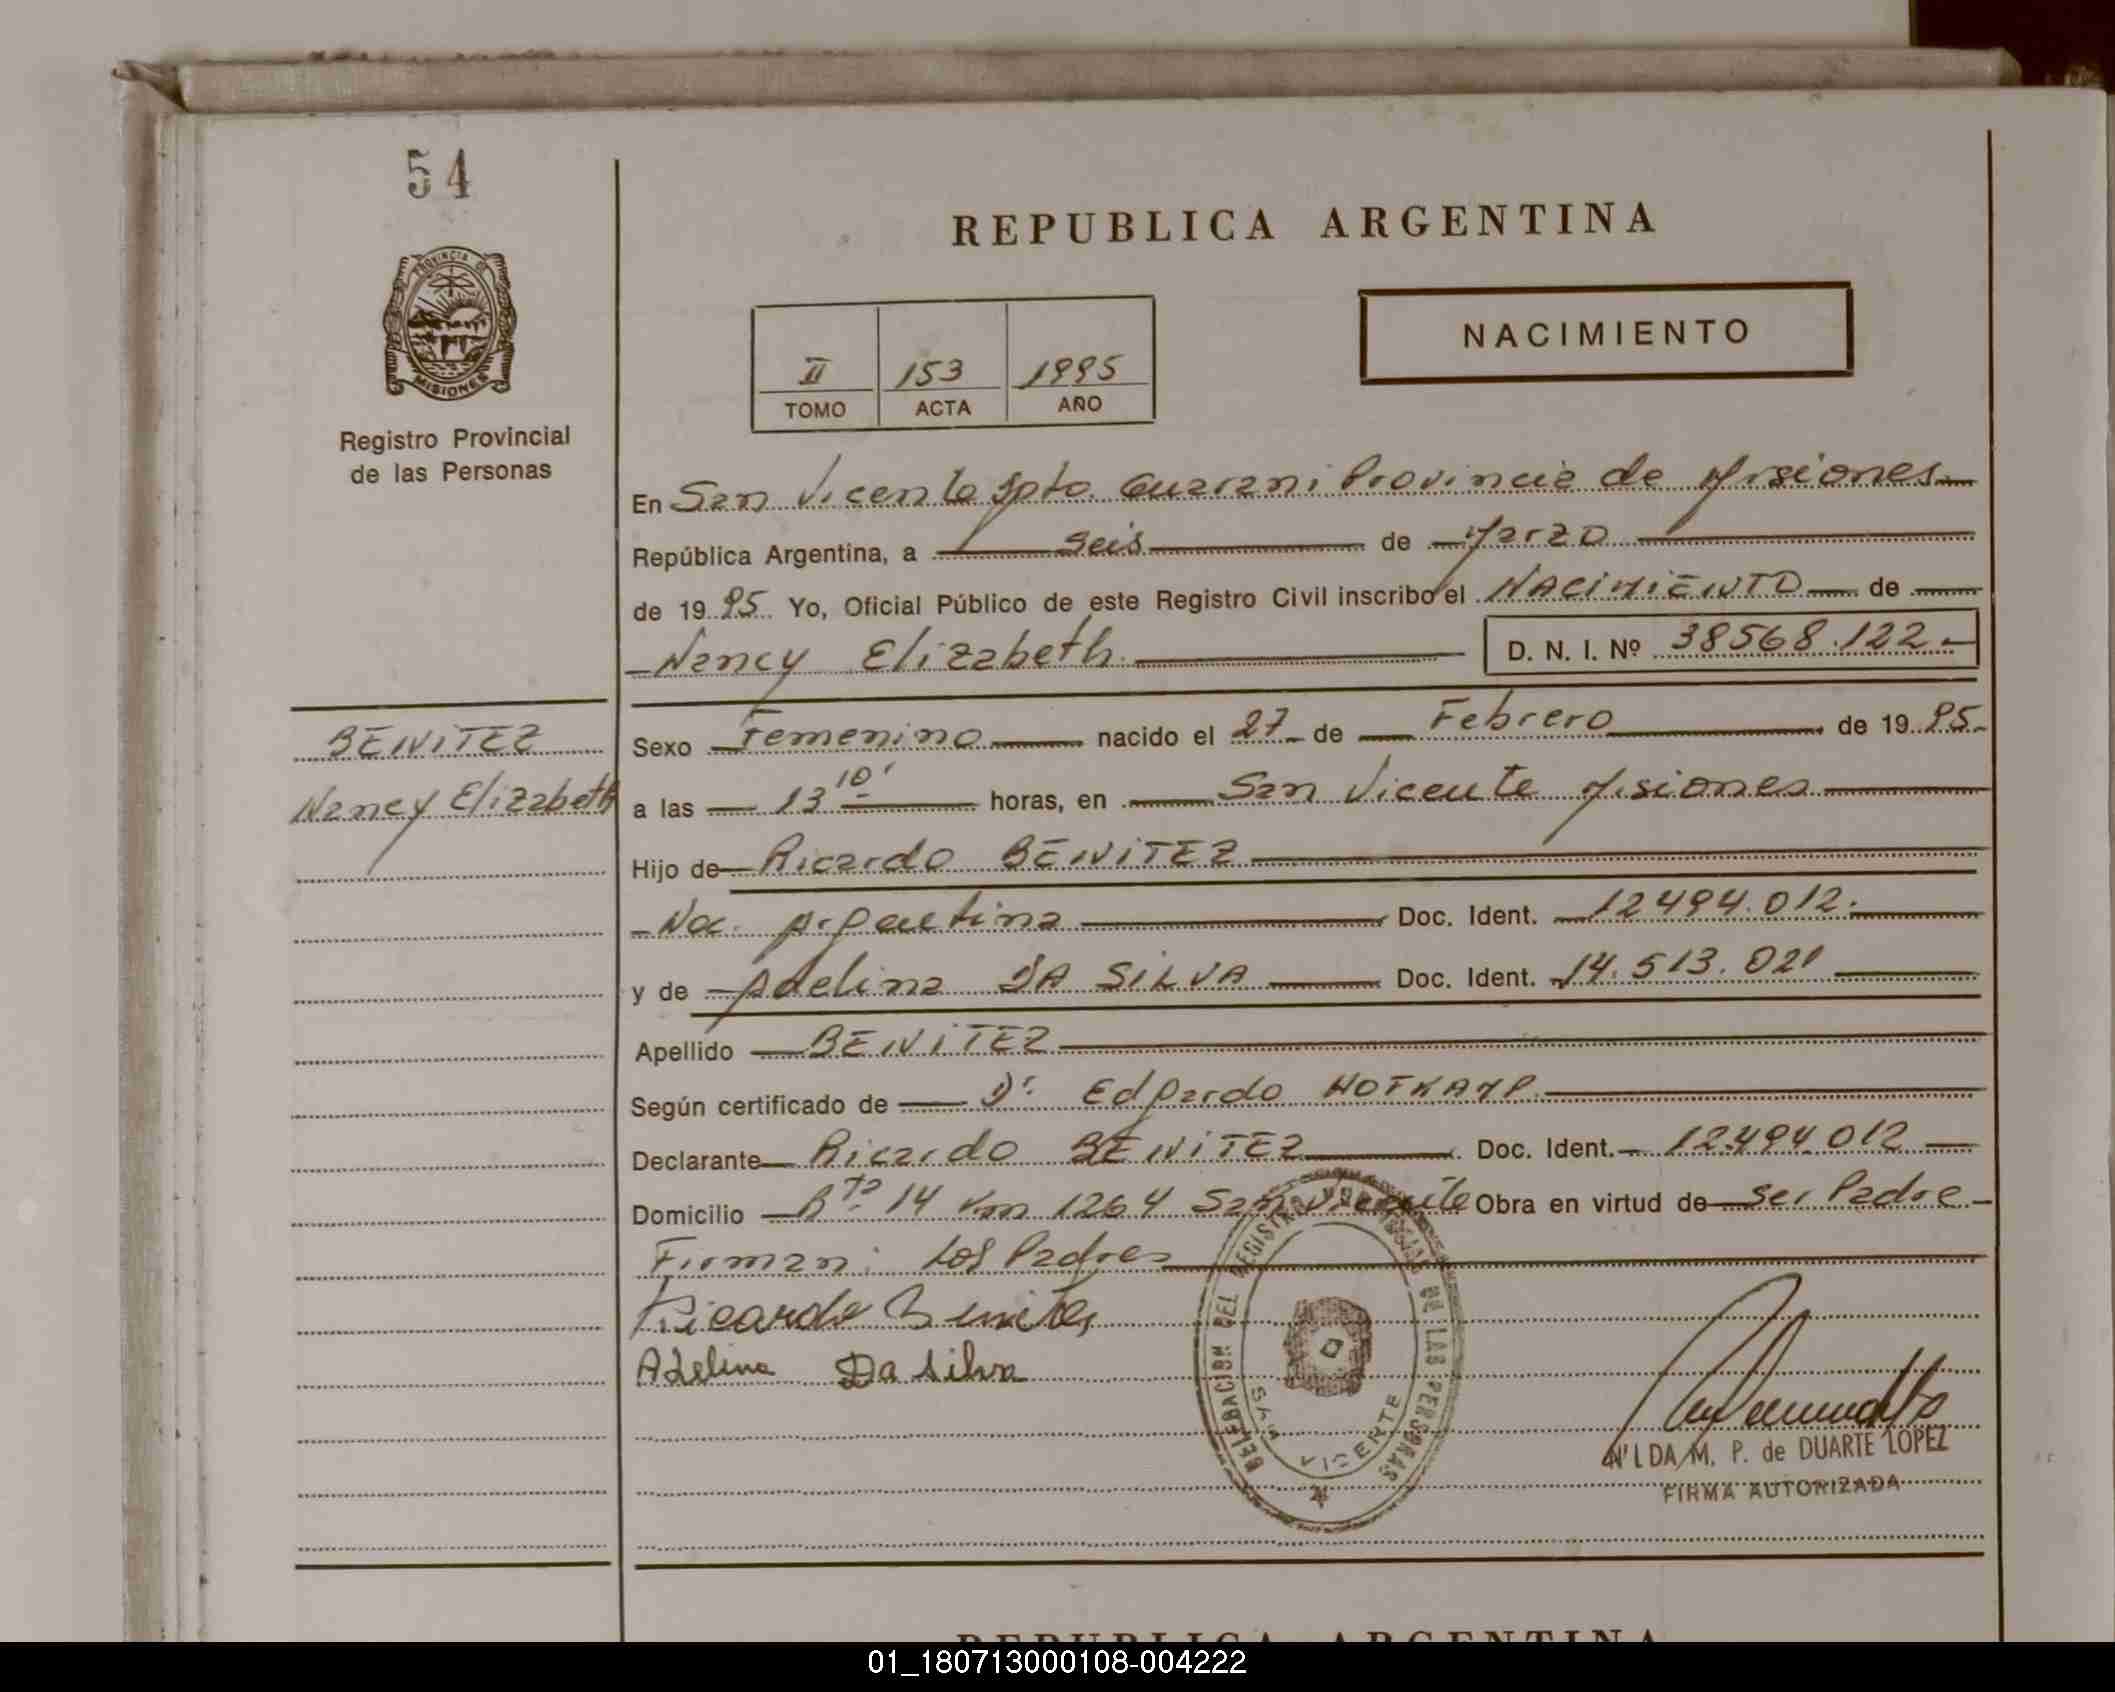 54
PROVINCIA DE
MISIONES
Registro Provincial
de las Personas
REPUBLICA ARGENTINA
NACIMIENTO
II 153 1995
TOMO ACTA AÑO
En San Vicente Dpto. Guarani Provincia de Misiones
República Argentina, a seis de Marzo
de 19 95 Yo, Oficial Público de este Registro Civil inscribo el NACIMIENTO de
Nancy Elizabeth D. N. I. Nº 38568.122.-
BENITEZ
Nancy Elizabeth
Sexo Femenino nacido el 27 de Febrero de 19 95
a las 13 10' horas, en San Vicente Misiones
Hijo de Ricardo BENITEZ
Nac. Argentina Doc. Ident. 12494.012.
y de Adelina DA SILVA Doc. Ident. 14.513.021
Apellido BENITEZ
Según certificado de Dr. Edgardo HOFKAMP.
Declarante Ricardo BENITEZ Doc. Ident. 12.494.012
Domicilio Rta. 14 Km 1264 San Vicente Obra en virtud de ser Padre
Firman: Los Padres
Ricardo Benitez
Adelina Da Silva
DELEGACION DEL REGISTRO PROVINCIAL DE LAS PERSONAS
SAN VICENTE
NILDA M. P. de DUARTE LOPEZ
FIRMA AUTORIZADA
REPUBLICA ARGENTINA
01_180713000108-004222